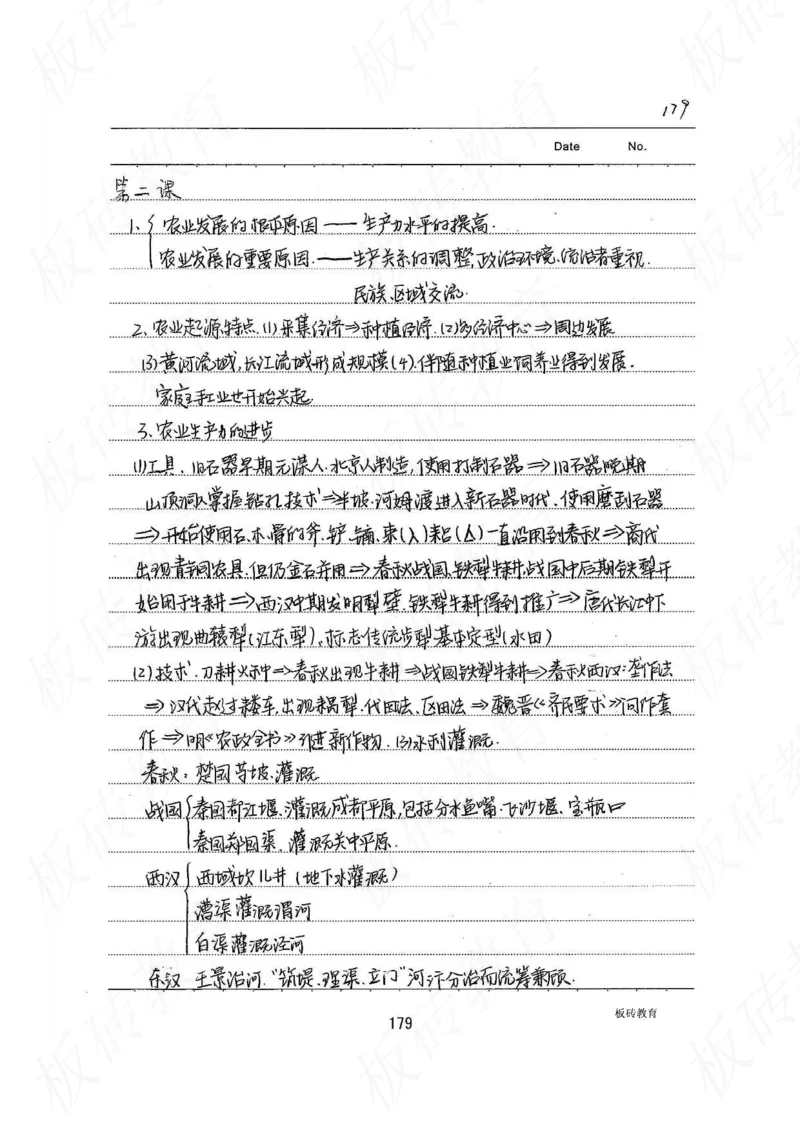 179
Date No.
第二课
1、{农业发展的根本原因——生产力水平的提高.
农业发展的重要原因.——生产关系的调整,政治环境、统治者重视.
民族、区域交流.
2、农业起源特点.(1)采集经济⇒种植经济.(2)多经济中心⇒周边发展
(3)黄河流域,长江流域形成规模(4).伴随种植业饲养业得到发展.
家庭手工业也开始兴起.
3、农业生产力的进步
(1)工具.旧石器早期元谋人.北京人制造,使用打制石器⇒旧石器晚期
山顶洞人掌握钻孔技术⇒半坡.河姆渡进入新石器时代.使用磨刮石器
⇒开始使用石.木.骨的斧.铲.镐.耒(入)耜(△)一直沿用到春秋⇒商代
出现青铜农具.但仍金石并用⇒春秋战国.铁犁牛耕.战国中后期铁犁开
始用于牛耕⇒西汉中期发明犁壁.铁犁牛耕得到推广⇒唐代长江中下
游出现曲辕犁(江东犁).标志传统步犁基本定型(水田)
(2)技术.刀耕火种⇒春秋出现牛耕⇒战国铁犁牛耕⇒春秋西汉:垄作法
⇒汉代赵过耧车,出现耦犁.代田法、区田法⇒魏晋《齐民要术》间作套
作⇒明《农政全书》引进新作物.(3)水利灌溉.
春秋:楚国芍坡.灌溉
战国{秦国都江堰.灌溉成都平原,包括分水鱼嘴.飞沙堰、宝瓶口
秦国郑国渠、灌溉关中平原.
西汉{西域坎儿井(地下水灌溉)
漕渠灌溉渭河
白渠灌溉泾河
东汉 王景治河."筑堤.理渠.立门"河汴分治而流筹兼顾.
179
板砖教育